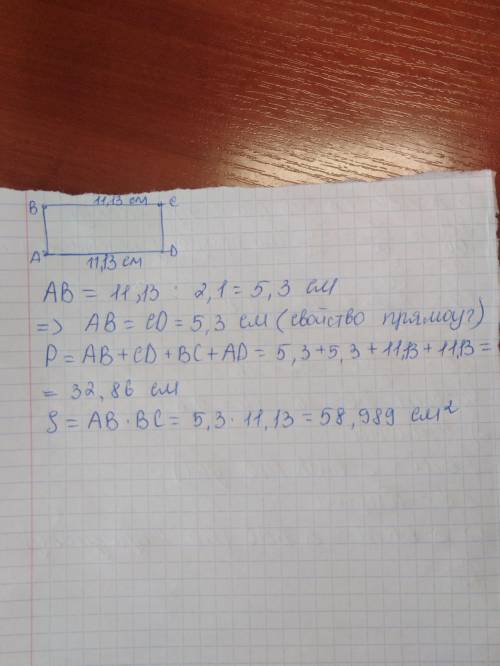 B 11,13 см C
A 11,13 см D
AB = 11,13 : 2,1 = 5,3 см
=> AB = CD = 5,3 см (свойство прямоуг)
P = AB + CD + BC + AD = 5,3 + 5,3 + 11,13 + 11,13 =
= 32,86 см
S = AB · BC = 5,3 · 11,13 = 58,989 см²